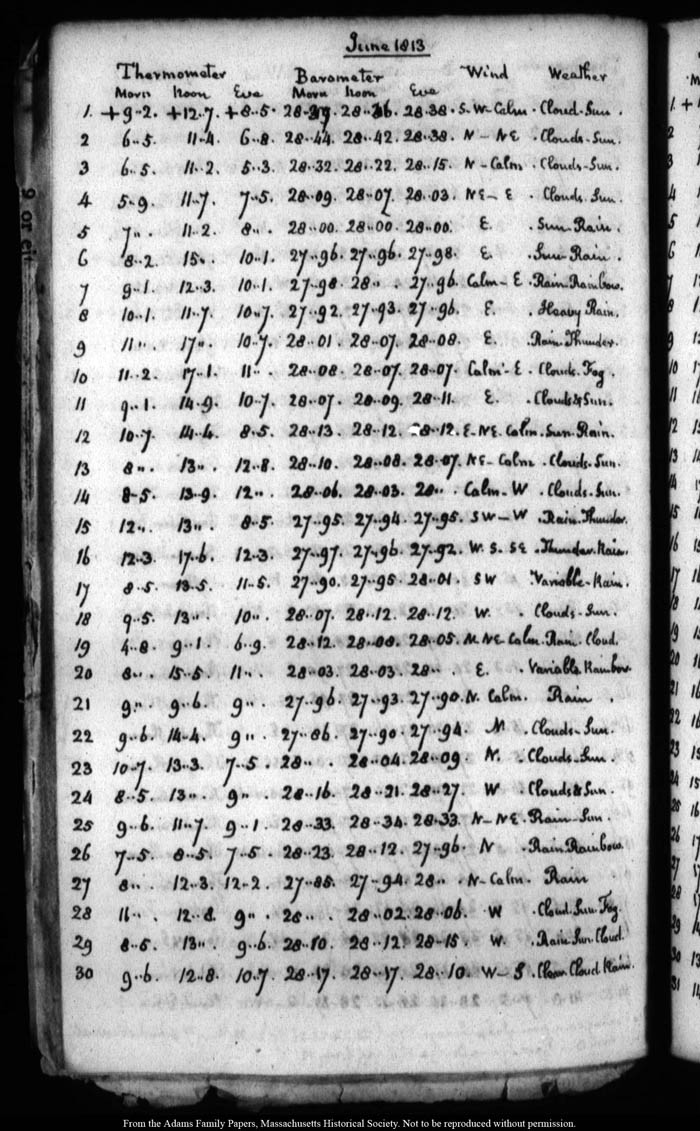 June 1813
Thermometer Barometer Wind Weather
Morn Noon Eve Morn Noon Eve
1. +9-2. +12-7. +8-5. 28-39. 28-36. 28-38. S-W-Calm. Cloud-Sun.
2 6-5. 11-4. 6-8. 28-44. 28-42. 28-38. N-NE. Clouds-Sun.
3 6-5. 11-2. 5-3. 28-32. 28-22. 28-15. N-Calm. Clouds-Sun.
4 5-9. 11-7. 7-5. 28-09. 28-07. 28-03. NE-E. Clouds. Sun.
5 7". 11-2. 8". 28-00. 28-00. 28-00. E. Sun-Rain.
6 8-2. 15". 10-1. 27-96. 27-96. 27-98. E. Sun-Rain.
7 9-1. 12-3. 10-1. 27-98. 28". 27-96. Calm-E. Rain. Rainbow.
8 10-1. 11-7. 10-7. 27-92. 27-93. 27-96. E. Heavy Rain.
9 11". 17". 10-7. 28-01. 28-07. 28-08. E. Rain. Thunder.
10 11-2. 17-1. 11". 28-08. 28-07. 28-07. Calm-E. Cloud. Fog.
11 9-1. 14-9. 10-7. 28-07. 28-09. 28-11. E. Clouds & Sun.
12 10-7. 14-4. 8-5. 28-13. 28-12. 28-12. E-NE. Calm. Sun-Rain.
13 8". 13". 12-8. 28-10. 28-08. 28-07. NE-Calm. Clouds-Sun.
14 8-5. 13-9. 12". 28-06. 28-03. 28". Calm-W. Clouds-Sun.
15 12". 13". 8-5. 27-95. 27-94. 27-95. SW-W. Rain. Thunder.
16 12-3. 17-6. 12-3. 27-97. 27-96. 27-92. W. S. SE. Thunder. Rain.
17 8-5. 13-5. 11-5. 27-90. 27-95. 28-01. SW Variable-Rain.
18 9-5. 13". 10". 28-07. 28-12. 28-12. W. Clouds-Sun.
19 4-8. 9-1. 6-9. 28-12. 28-08. 28-05. N. NE. Calm. Rain. Cloud.
20 8". 15-5. 11". 28-03. 28-03. 28". E. Variable Rainbow
21 9". 9-6. 9". 27-96. 27-93. 27-90. N. Calm. Rain.
22 9-6. 14-4. 9". 27-86. 27-90. 27-94. N. Clouds-Sun.
23 10-7. 13-3. 7-5. 28". 28-04. 28-09 N. Clouds. Sun.
24 8-5. 13". 9". 28-16. 28-21. 28-27. W. Clouds & Sun.
25 9-6. 11-7. 9-1. 28-33. 28-34. 28-33. N-NE. Rain-Sun.
26 7-5. 8-5. 7-5. 28-23. 28-12. 27-96. N. Rain. Rainbow
27 8". 12-3. 12-2. 27-85. 27-94. 28". N-Calm. Rain
28 11". 12-8. 9". 28". 28-02. 28-06. W. Cloud. Sun. Fog.
29 8-5. 13". 9-6. 28-10. 28-12. 28-15. W. Rain. Sun. Cloud.
30 9-6. 12-8. 10-7. 28-17. 28-17. 28-10. W-S. Cloud Rain.
From the Adams Family Papers, Massachusetts Historical Society. Not to be reproduced without permission.